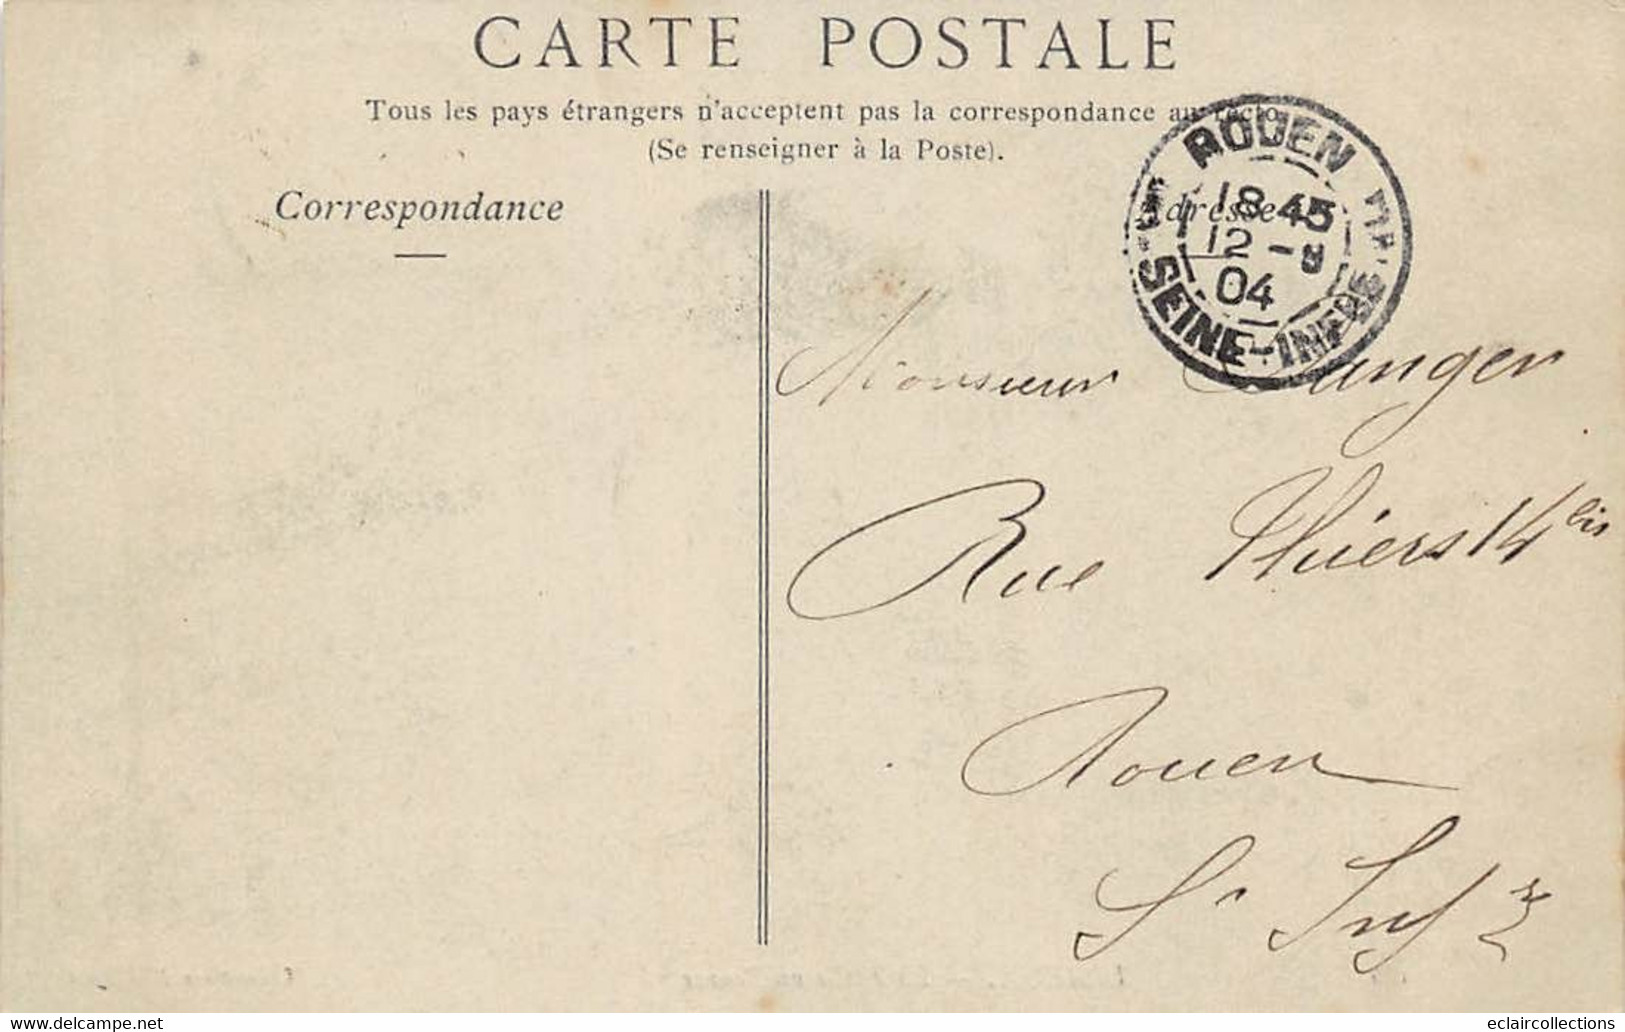 CARTE POSTALE
Tous les pays étrangers n'acceptent pas la correspondance au recto
(Se renseigner à la Poste).
Correspondance
Adresse
ROUEN
18 45
12 - 9
04
SEINE-INFRE
Monsieur
Rue Thiers 14 bis
Rouen
Sr Infre
www.delcampe.net
eclaircollections